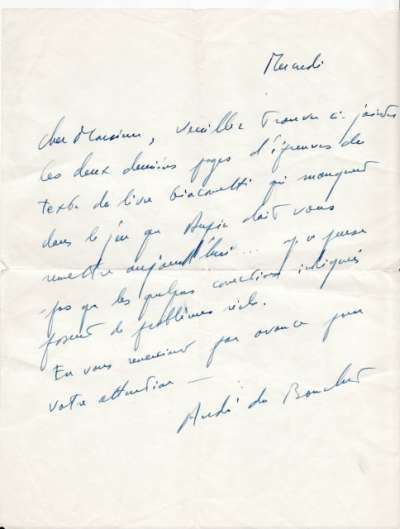 Mercredi
Cher Monsieur, veuillez trouver ci-jointes
les deux dernières pages d'épreuves du
texte du livre Giacometti qui manquent
dans le jeu que Dupin doit vous
remettre aujourd'hui... Je ne pense
pas que les quelques corrections indiquées
posent de problèmes réels.
En vous remerciant par avance pour
votre attention —
André du Bouchet